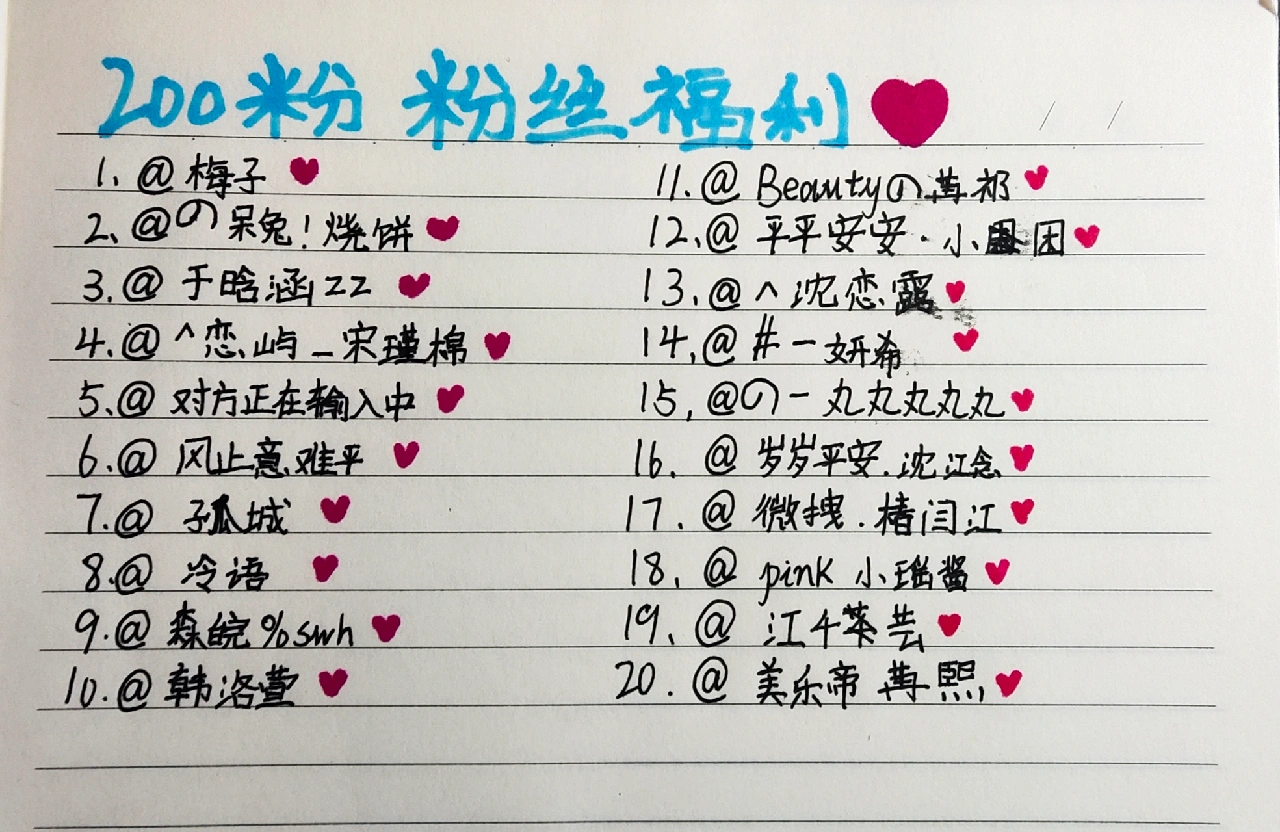 200粉 粉丝福利
1. @ 梅子
2、@の呆兔！烧饼
3. @ 于晗涵zz
4. @ ^恋屿_宋瑾棉
5. @ 对方正在输入中
6. @ 风止意难平
7. @ 孤城
8. @ 冷语
9. @ 森皖%swh
10. @ 韩洛萱
11. @ Beautyの苒祁
12. @ 平平安安·小困
13. @ ^沈恋露
14, @ #一妍希
15, @の一丸丸丸丸丸
16. @ 岁岁平安.沈江念
17. @ 微拽.椿闫江
18. @ pink 小瑶酱
19. @ 江4茶芸
20. @ 美乐帝 苒熙